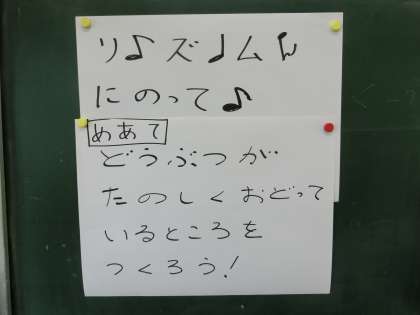 リ♪ズ♩ムん
にのって♪
めあて
どうぶつが
たのしくおどって
いるところを
つくろう!